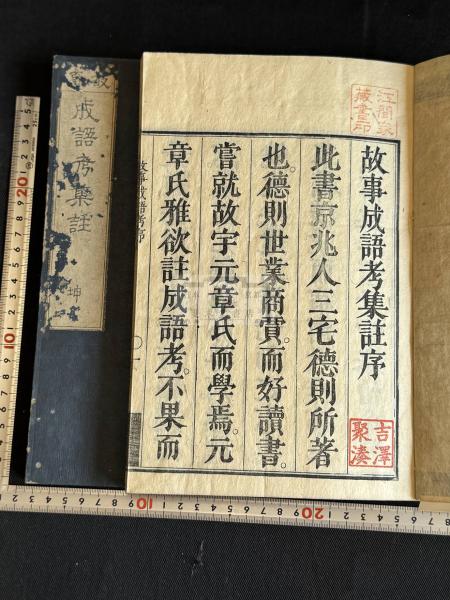 故事成語考集註序
此書京兆人三宅德則所著
也。德則世業商賈。而好讀書。
嘗就故宇元章氏而學焉。元
章氏雅欲註成語考。不果而
吉澤
聚湊
藏書印
故事成語考序
成語考集註
坤